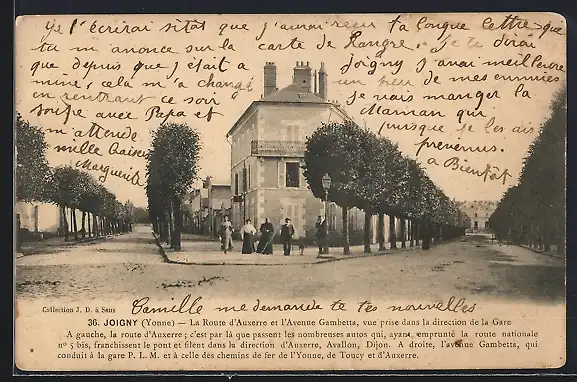 Je t'écrirai sitôt que j'aurai reçu ta longue lettre que
tu m'annonce sur la carte de Hangre. Je te dirai
que depuis que j'étais à Joigny j'ai meilleure
mine, cela m'a changé un peu de mes ennuies
en rentrant ce soir je vais manger la
soupe avec Papa et Maman qui
m'attende puisque je les ais
mille baisers prévenus.
Marguerite A Bientôt
Camille me demande de tes nouvelles
Collection J. D. à Sens
36. JOIGNY (Yonne) — La Route d'Auxerre et l'Avenue Gambetta, vue prise dans la direction de la Gare
A gauche, la route d'Auxerre ; c'est par là que passent les nombreuses autos qui, ayant emprunté la route nationale
n° 5 bis, franchissent le pont et filent dans la direction d'Auxerre, Avallon, Dijon. A droite, l'avenue Gambetta, qui
conduit à la gare P. L. M. et à celle des chemins de fer de l'Yonne, de Toucy et d'Auxerre.